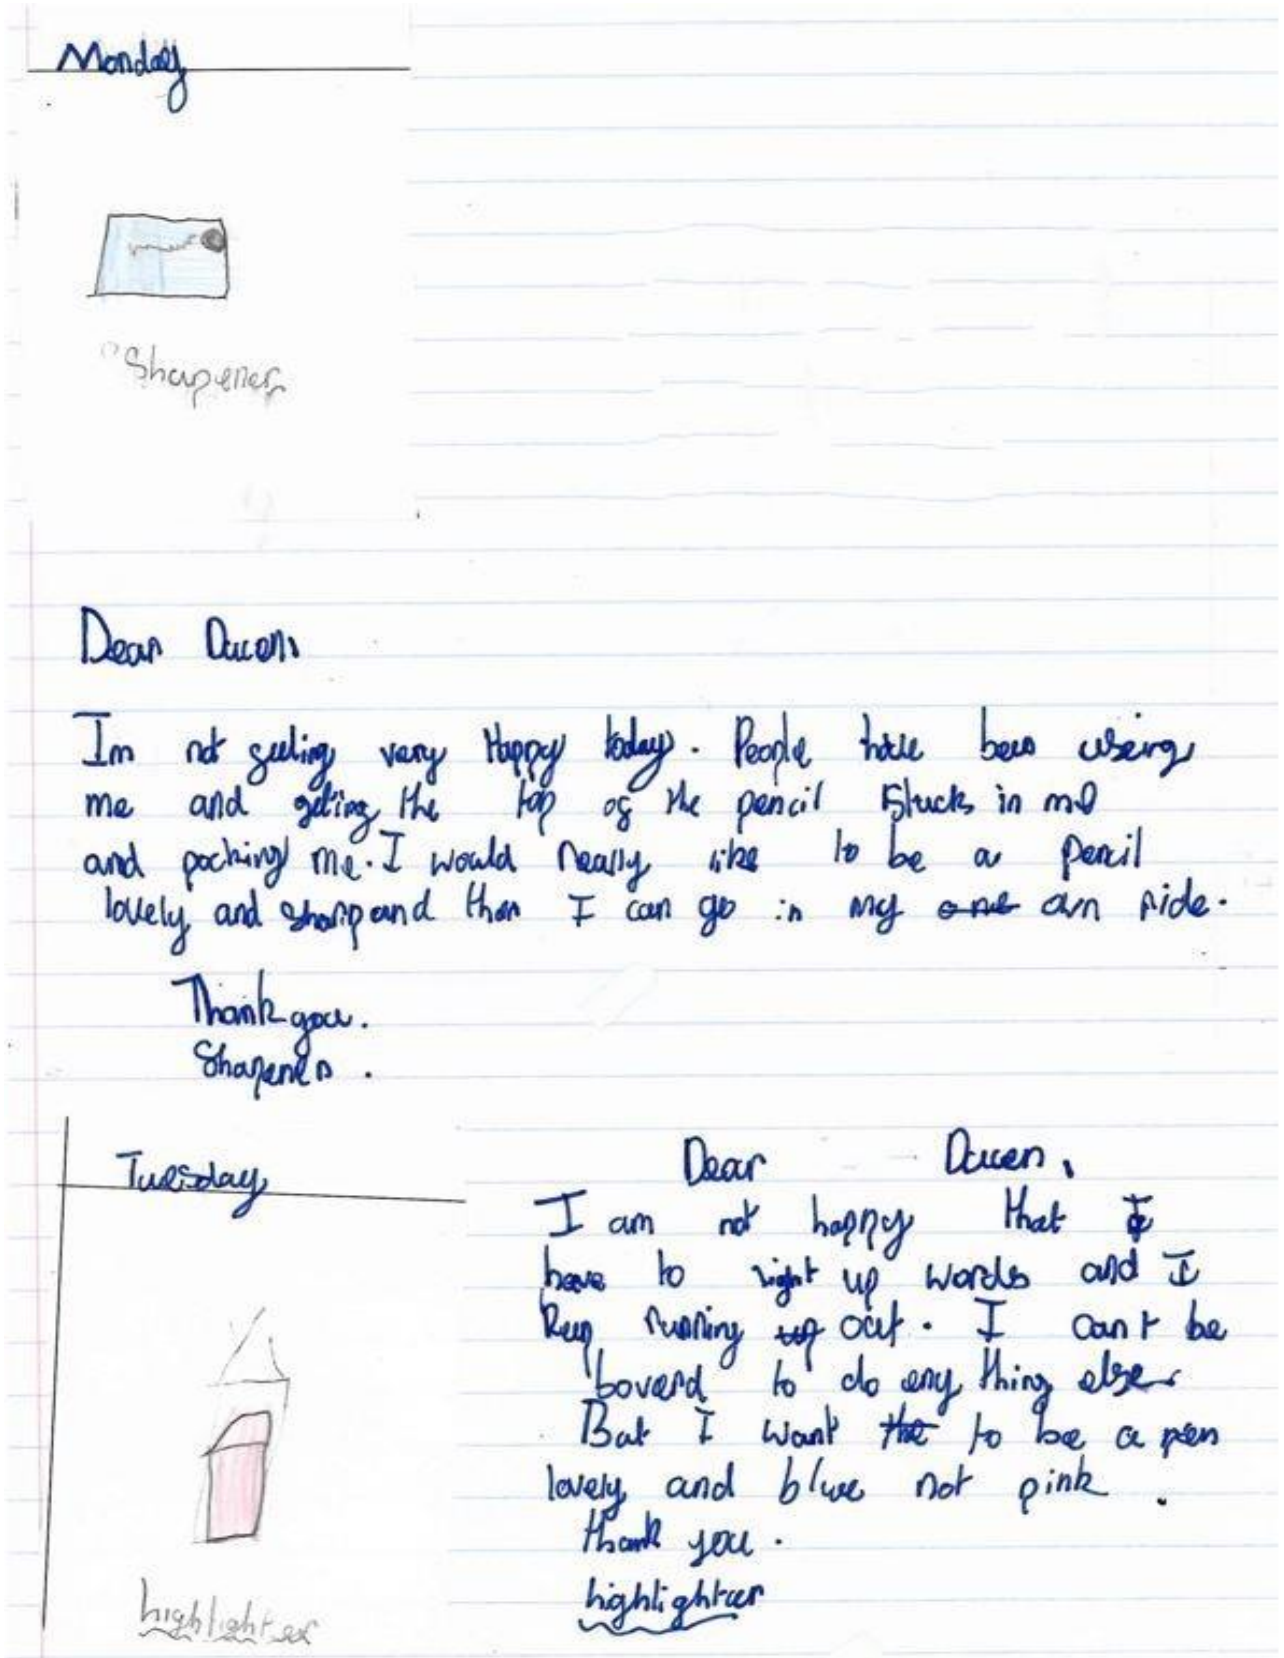 Monday
Sharpener
Dear Duncan,
Im not feeling very Happy today. People have been useing
me and geting the top of the pencil Stuck in me
and packing me. I would really like to be a pencil
lovely and sharp and then I can go in my one own ride.
Thank you.
Sharpener.
Tuesday
highlighter
Dear
I am not happy that I
have to right up words and I
keep running up out. I can't be
boverd to do any thing else.
But I want the to be a pen
lovely and blue not pink.
thank you.
highlighter